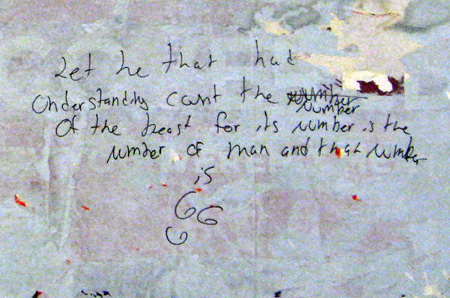 Let he that had
Understanding count the number
Of the beast for its number is the
number of man and that number
is
66
6